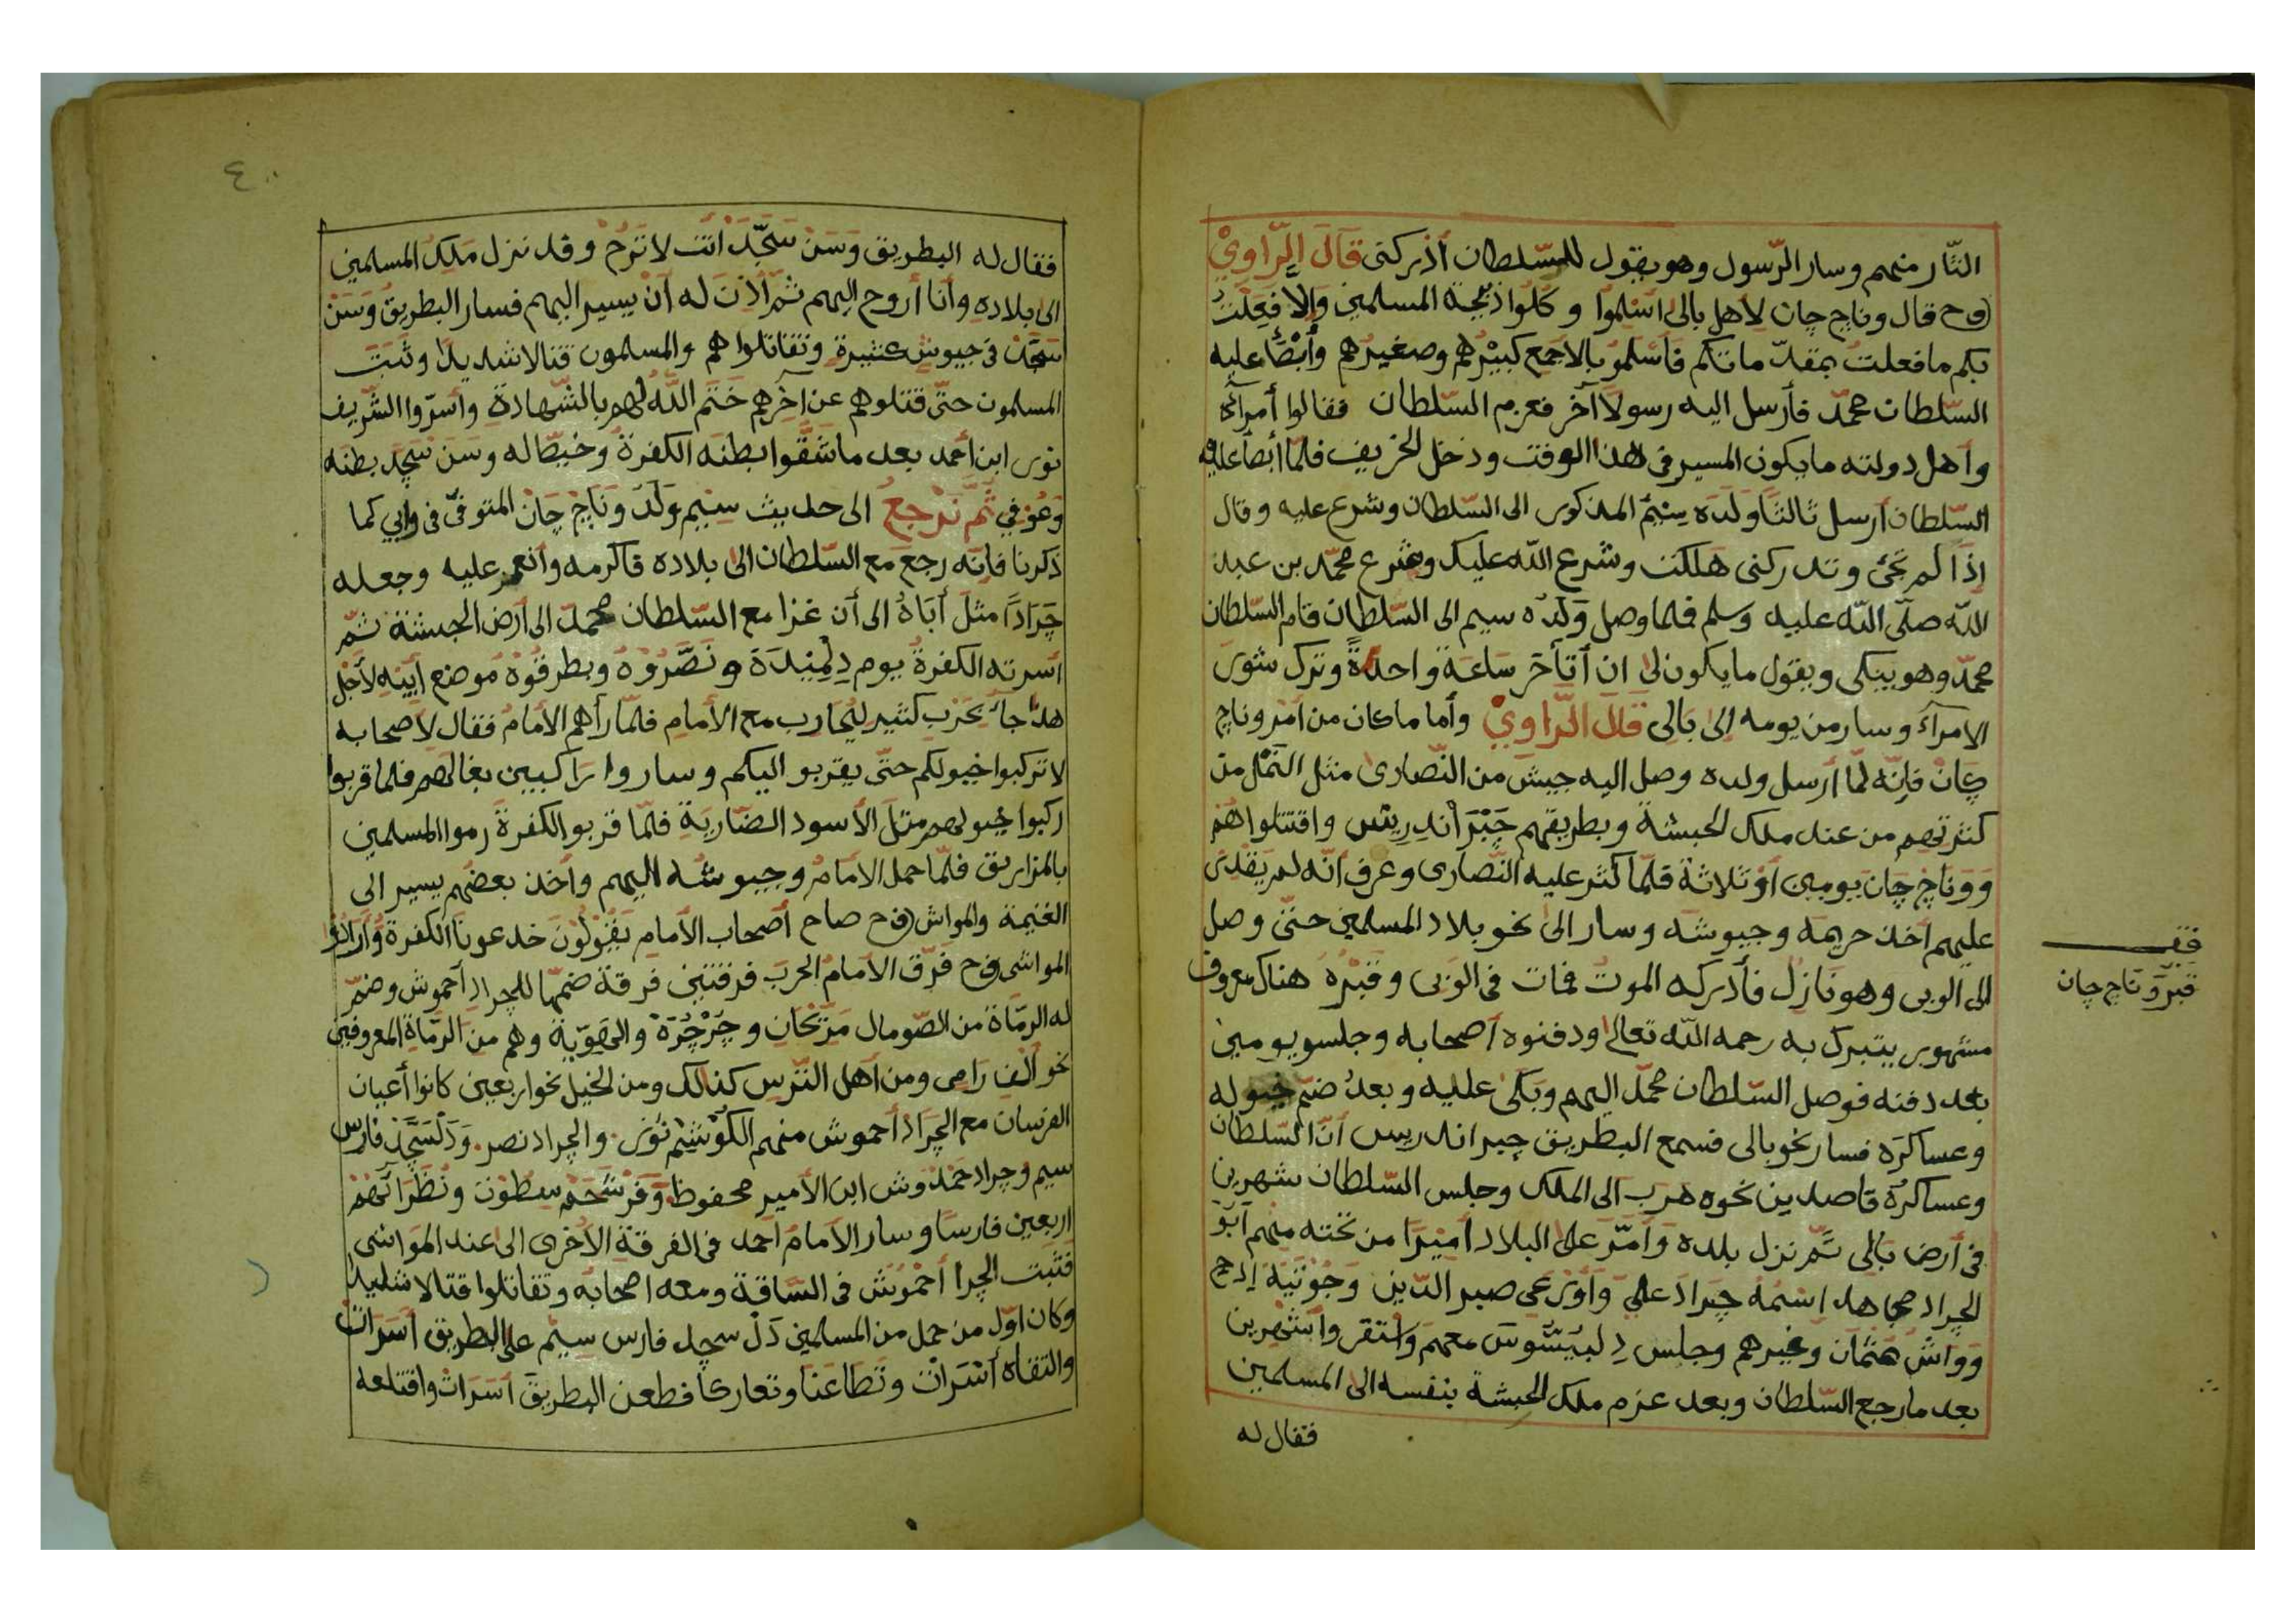 النّار منهم وسار الرّسول وهو يقول للسّلطان أذركنى قَالَ الرّاوِيْ
(ف ح قال وناج چان لأهل بالى اسْلِمُوا و كُلُوا ذبيحة المسلمين وإلا فَعَلْتُ
بكم ما فعلت بمقدّماتكم فأسْلمُو بالاجمع كبيْرُهم وصغيرُهم وأبْطَأ عليه
السّلطان محمّد فأرسل اليه رسولاً آخر فعزم السّلطان فقالوا أمرآئه
وأهل دولته ما يكون المسير فى هذا الوقت ودخل الخريف فلمّا أبطأ عليه
السّلطان أرسل ثالثًا وَلَدَه سِيْمْ المذكور الى السّلطان وشرع عليه وقال
إذًا لم تجئ وتدركنى هَلَكت وشرع اللّه عليك وشرع محمّد بن عبد
اللّه صلّى اللّه عليه وسلم فلما وصل وَلَدَه سيم الى السّلطان قام السّلطان
محمّد وهو يبكى ويقول ما يكون لى ان أتأخّر سَاعَةً واحدةً وترك شور
الامرآء وسار من يومه إلى بَالِى قَالَ الرّاوِيْ وأما ما كان من امر وناج
چانْ فإنّه لمّا أرسل ولده وصل اليه جيش من النّصارى مثل النّمل من
كثرتهم من عند ملك الحبشة وبطريقهم جَبْرَ أنْدِرِيَسْ واقتتلوا هُمْ
وَوَناجْ چَانْ يومين أوْ ثلاثة فلمّا كثر عليه النّصارى وعرف انّه لم يَقْدِرْ
عليهم أخذ حريمَه وجيوشَه وسار الى نحو بلاد المسلمين حتّى وصل
الى الوبى وهو نَازِل فأدركه الموت فمات فى الوَبِى وقَبْرُهُ هناك معروف
مشهور يتبرك به رحمه اللّه تعالى ودفنوه أصحابه وجلسو يومين
بعد دفنه فوصل السّلطان محمّد اليهم وبَكى عليه وبعدُ ضمّ خيوله
وعساكرَه فسار نحو بالى فسمع البطريق جبر اندريس أنّ السّلطان
وعساكرَه قاصدين نحوه هرب الى الملك وجلس السّلطان شهرين
فى أرض بَالِى ثمّ نزل بلده وَأمّرَ على البلاد أمِيْرًا من تحته منهم أبُوْ
الجراد مجاهد اسمُه جَراد علي وَأوْرَعى صبر الدّين وَجُوْتِيَهْ إدح
وَوَاشْ هَتْمَان وغيرهم وجلس دِلْبَيَسُوسْ معهم وَاسْتقر واشْهرين
بعد ما رجع السّلطان وبعد عزم ملك الحبشة بنفسه الى المسلمين
فقال له
قف
قبرُ وَناج چان
٤٠
فقال له البطريق وَسَنْ سَجَّدْ أنت لا تَرُحْ وقد نزل مَلِك المسلمين
الى بلاده وأنا أروح اليهم ثمّ أذِنَ له أن يسير اليهم فسار البطريق وَسَنْ
سَجَّدْ فى جيوش كثيرة وتقاتلوا هم والمسلمون قتالا شديدًا وثَبَتَ
المسلمون حتّى قتلوهم عن آخرهم خَتَم اللّه لهم بالشّهادة وأسرّوا الشّريف
نور ابن أحمد بعد ما شَقُّوا بطنَه الكفرةُ وخيّطَا له وسَنْ سَجَّدْ بطنَه
وَعُوْفِي ثُمّ نَرْجِعُ الى حديث سِيْمْ وَلَدْ وَنَاجْ چَانْ المتوفّى فى وابي كما
ذكرنا فانّه رجع مع السّلطان الى بلاده فاكرمه وأنعم عليه وجعله
جَرَادًا مثلَ أبَاهُ الى أن غزا مع السّلطان محمّد الى أرض الحبشة ثمّ
أسرته الكفرةُ يوم دِلْمِيْدَةَ ونَصَّرُوْهُ وبطرقُوْهُ موضع أبِيْهِ لأجْل
هذا جآء بحَرْب كثير ليُحارب مع الأمامِ فلمّا رأهم الأمامُ فقال لأصحابه
لا تركبوا خيولكم حتّى يقربو اليكم وساروا رَاكبين بغالَهم فلما قربوا
ركبوا خيولهم مثلَ الأسود الضّاريَة فلمّا قربو الكفرةُ رموا المسلمين
بالمزاريق فلمّا حمل الأمامُ وجيوشُه اليهم وأخذ بعضُهم يسير الى
الغنيمة والمواش (ف ح صاح أصحاب الأمامِ يَقُوْلُوْنَ خدعونَا الكفرةُ وَأرَادُوْا
المواشى ف ح فَرّق الأمامُ الحربَ فرقتين فرقة ضمّها للجراد أحموش وضمّ
له الرمّاة من الصّومال مَرَيْحَان وجُرْجُرَة والهَوّيَة وهم من الرّماةِ المعروفين
نحو ألف رَامِى ومن أهل التّرس كذلك ومن الخيل نحو اربعين كانوا أعيان
الفرسان مع الجراد أحموش منهم الكُوْشَمْ نُوْرْ . والجراد نصر . وَدَلْسَجَّدْ فارس
سيم وجراد حَمْدُوش ابن الأمير محفوظ وَفَرْشَحَمْ سِطُوْتْ ونُظَرَائُهُمْ
اربعين فارسًا وسار الأمامُ أحمد فى الفرقة الأخرى الى عند المواشى
فثَبَت الجرا أحْمُوْش فى السّاقة ومعه اصحابُه وتقاتلوا قتالا شديدا
وكان اوّل من حمل من المسلمين دَلْ سجد فارس سِيْم على البطريق أسَرَاتْ
والتقاه أسَرَاتْ وتَطَاعَنَا وتعاركا فطعن البطريق أسَرَاتْ واقتلعه